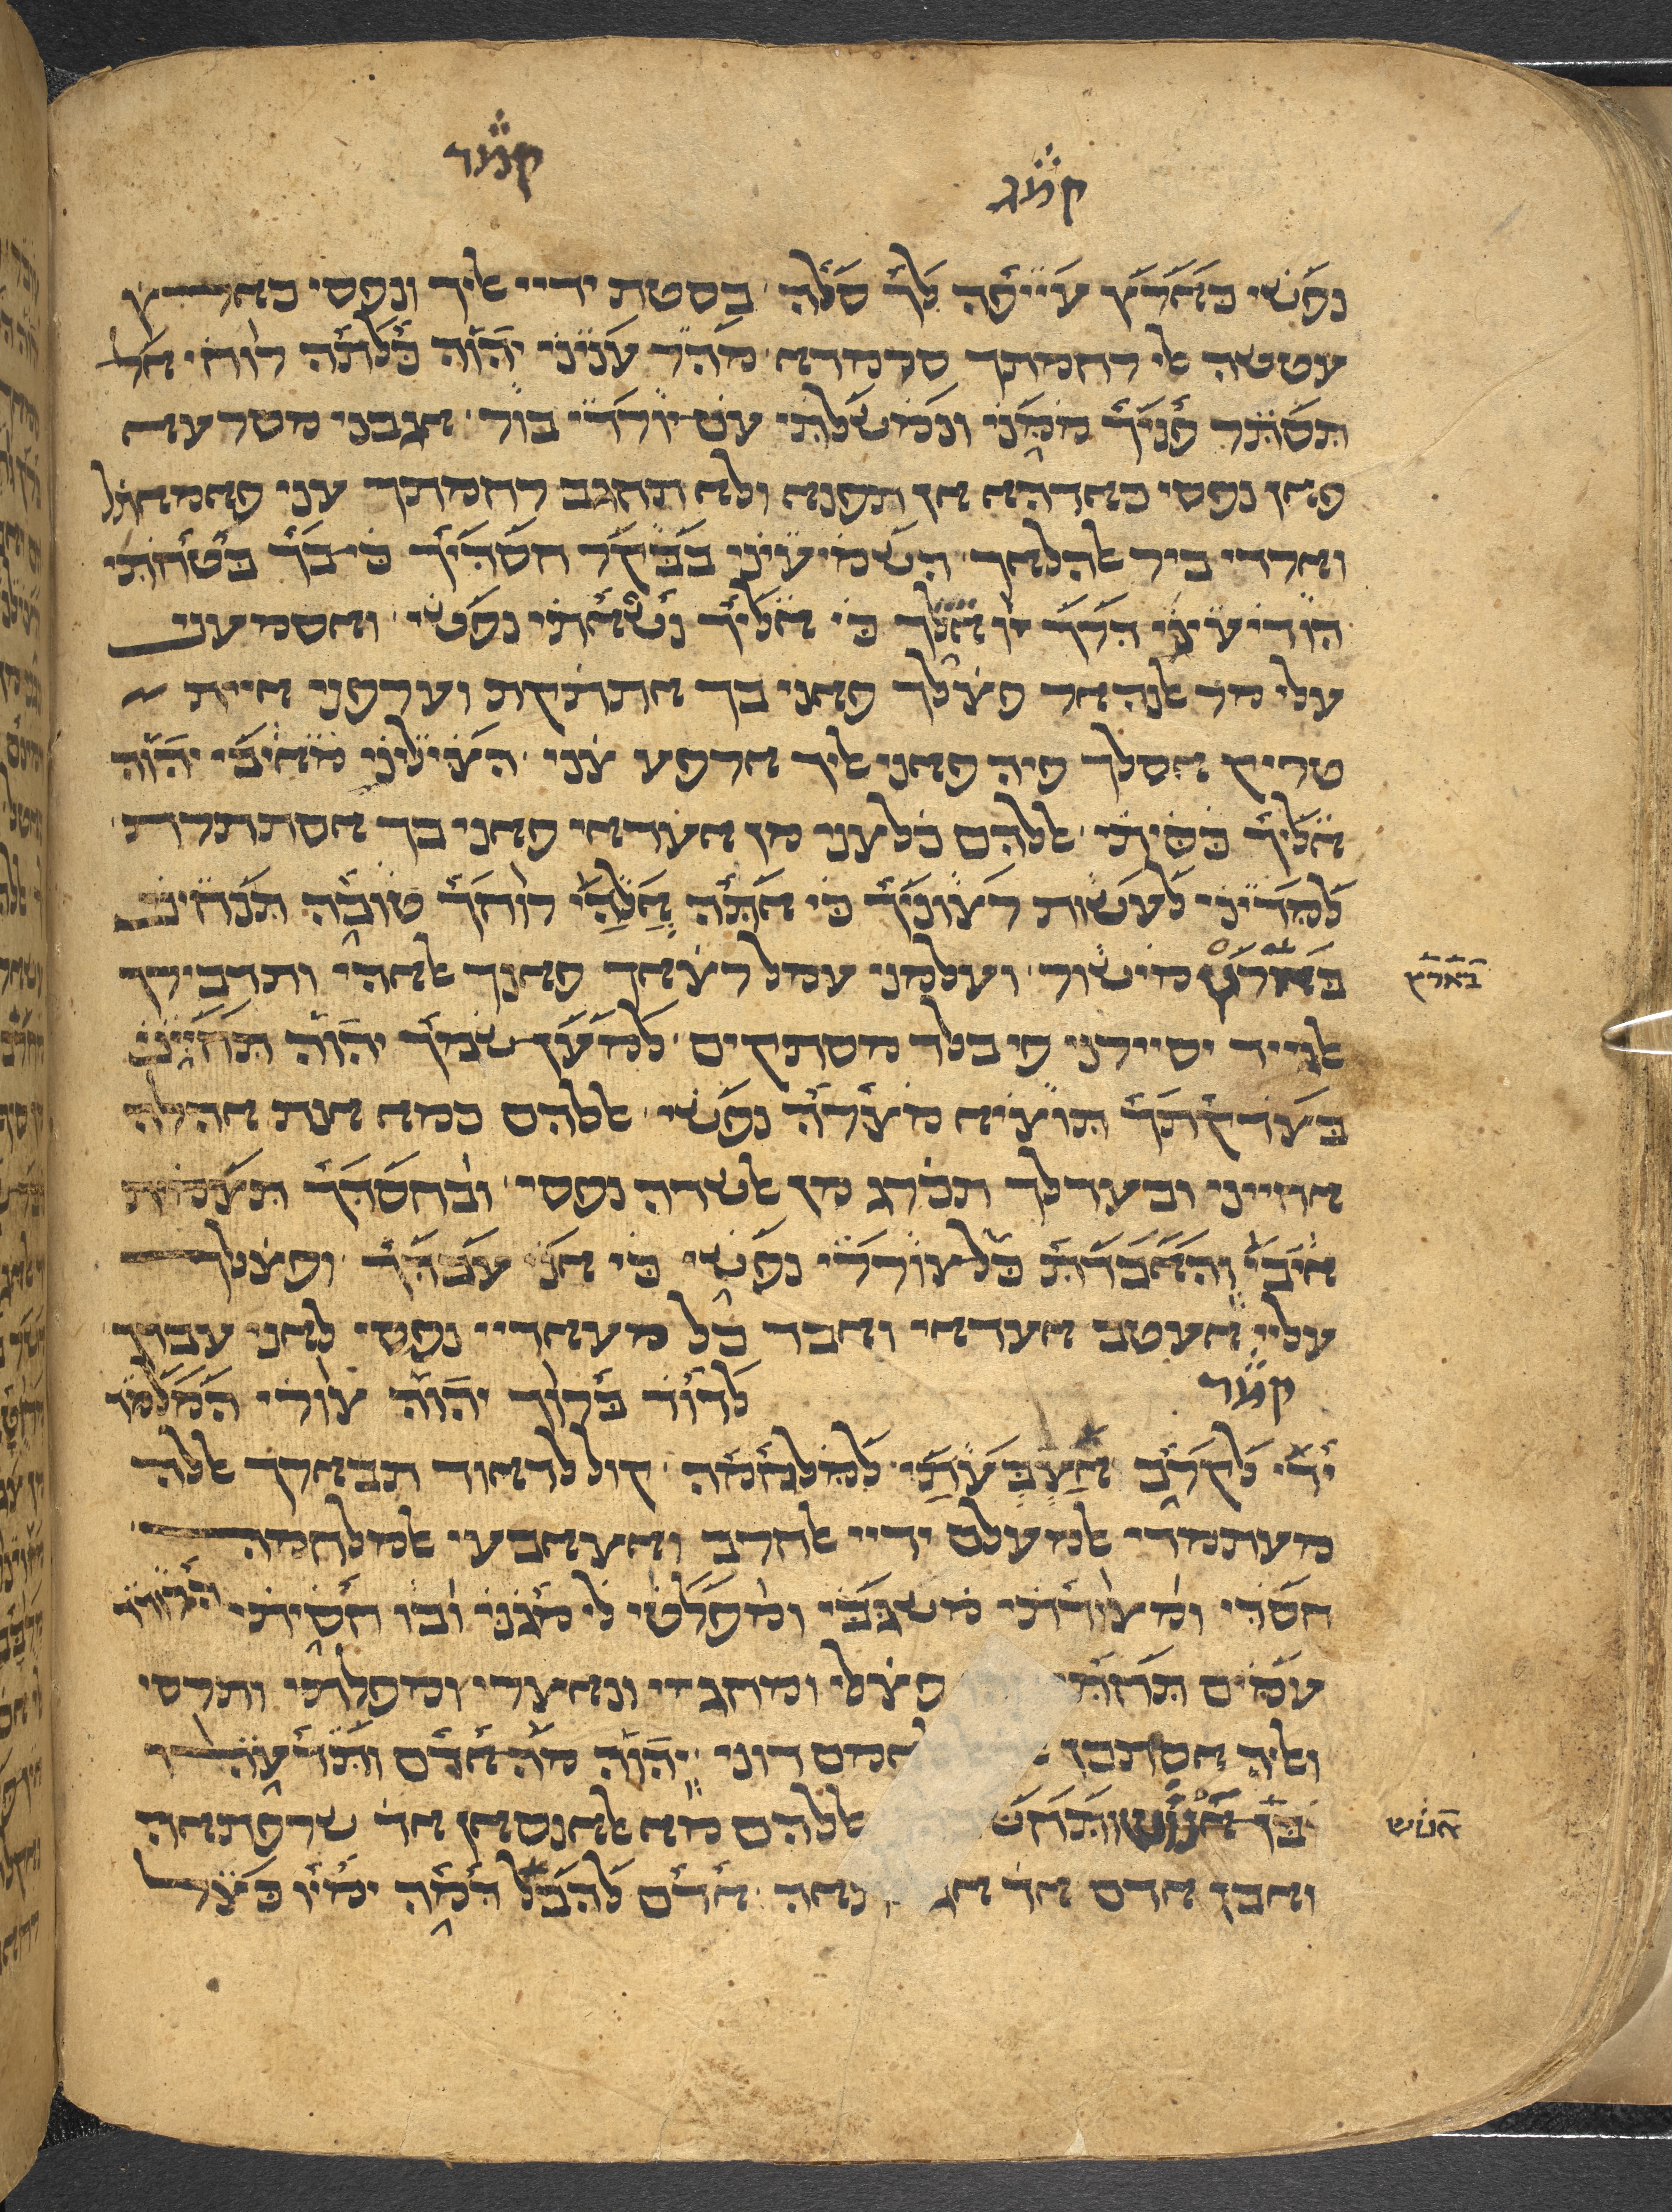 קמג קמד
נפשי כארץ עייפה לך סלה בסטת ידיי אליך ונפסי כארץ
עטשה אלי רחמתך סרמדא מהר עניני יהוה כלתה רוחי אל
תסתר פניך ממני ונמשלתי עם יורדי בור אגבני מסרעא
פאן נפסי כאדהא אן תפנא ולא תחגב רחמתך עני פאמאתל
וארדי ביר אלהלאך השמיעיני בבקר חסדיך כי בך בטחתי
הודיעיני דרך זו אלך כי אליך נשאתי נפשי ואסמעני
עלי מר אלנהאר פצלך פאני בך אתתקת ועדפני אית
טריק אסלך פיה פאני אליך ארפע צני הצילני מאיבי יהוה
אליך כסיתי אללהם כלצני מן אעדאי פאני בך אסתתרת
למדיני לעשות רצוניך כי אתה אלהי רוחך טובה תנחיני
בארץ מישור ועלמני עמל רצאך פאנך אלאהי ותדבירך בארץ
אלגיד יסיירני פי בלד מסתקים למען שמך יהוה תחייני
בצדקתך תוציא מצרה נפשי אללהם כמא אנת אהלה
אחייני ובעדלך תכרג מן אלשדה נפסי ובחסדך תצמית
איבי והאבדת כל צוררי נפשי כי אני עבדך ופצלך
עליי אעטב אעדאי ואבד כל מעאדיי נפסי לאני עבדך
קמד לדוד ברוך יהוה צורי המלמד
ידי לקרב אצבעתי למלחמה קול לדאוד תבארך אללה
מעתמדי אלמעלם ידיי אלחרב ואצאבעי אלמלחמה
חסדי ומצודתי משגבי ומפלטי לי מגני ובו חסיתי הרודד
עמים תחתי פצלי ומחגזי ונאצרי ומפלתי ותרסי
ואליה אסתכן אמם דוני יהוה מה אדם ותדעהו
בן אנוש ותחש אללהם מא אלאנסאן אד שרפתאה אנוש
ואבן אדם אד נאה אדם להבל דמה ימיו כצל